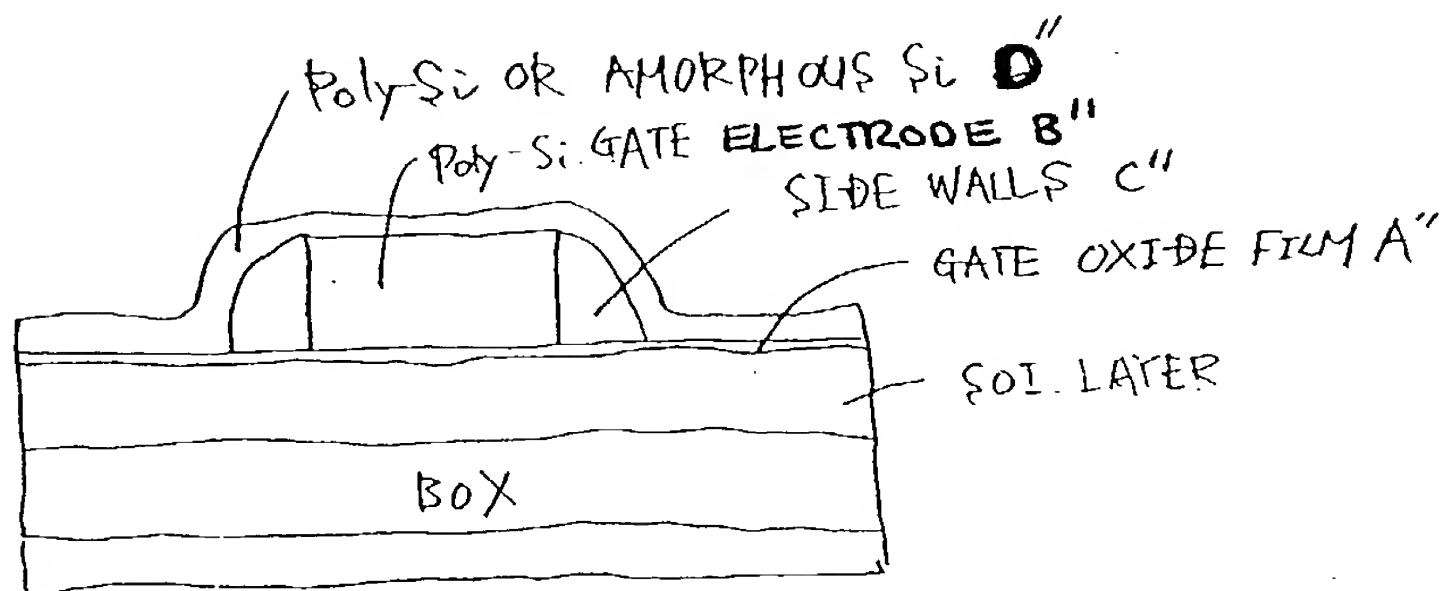 Poly-Si OR AMORPHOUS Si D"
Poly-Si. GATE ELECTRODE B"
SIDE WALLS C"
GATE OXIDE FILM A"
SOI. LAYER
BOX